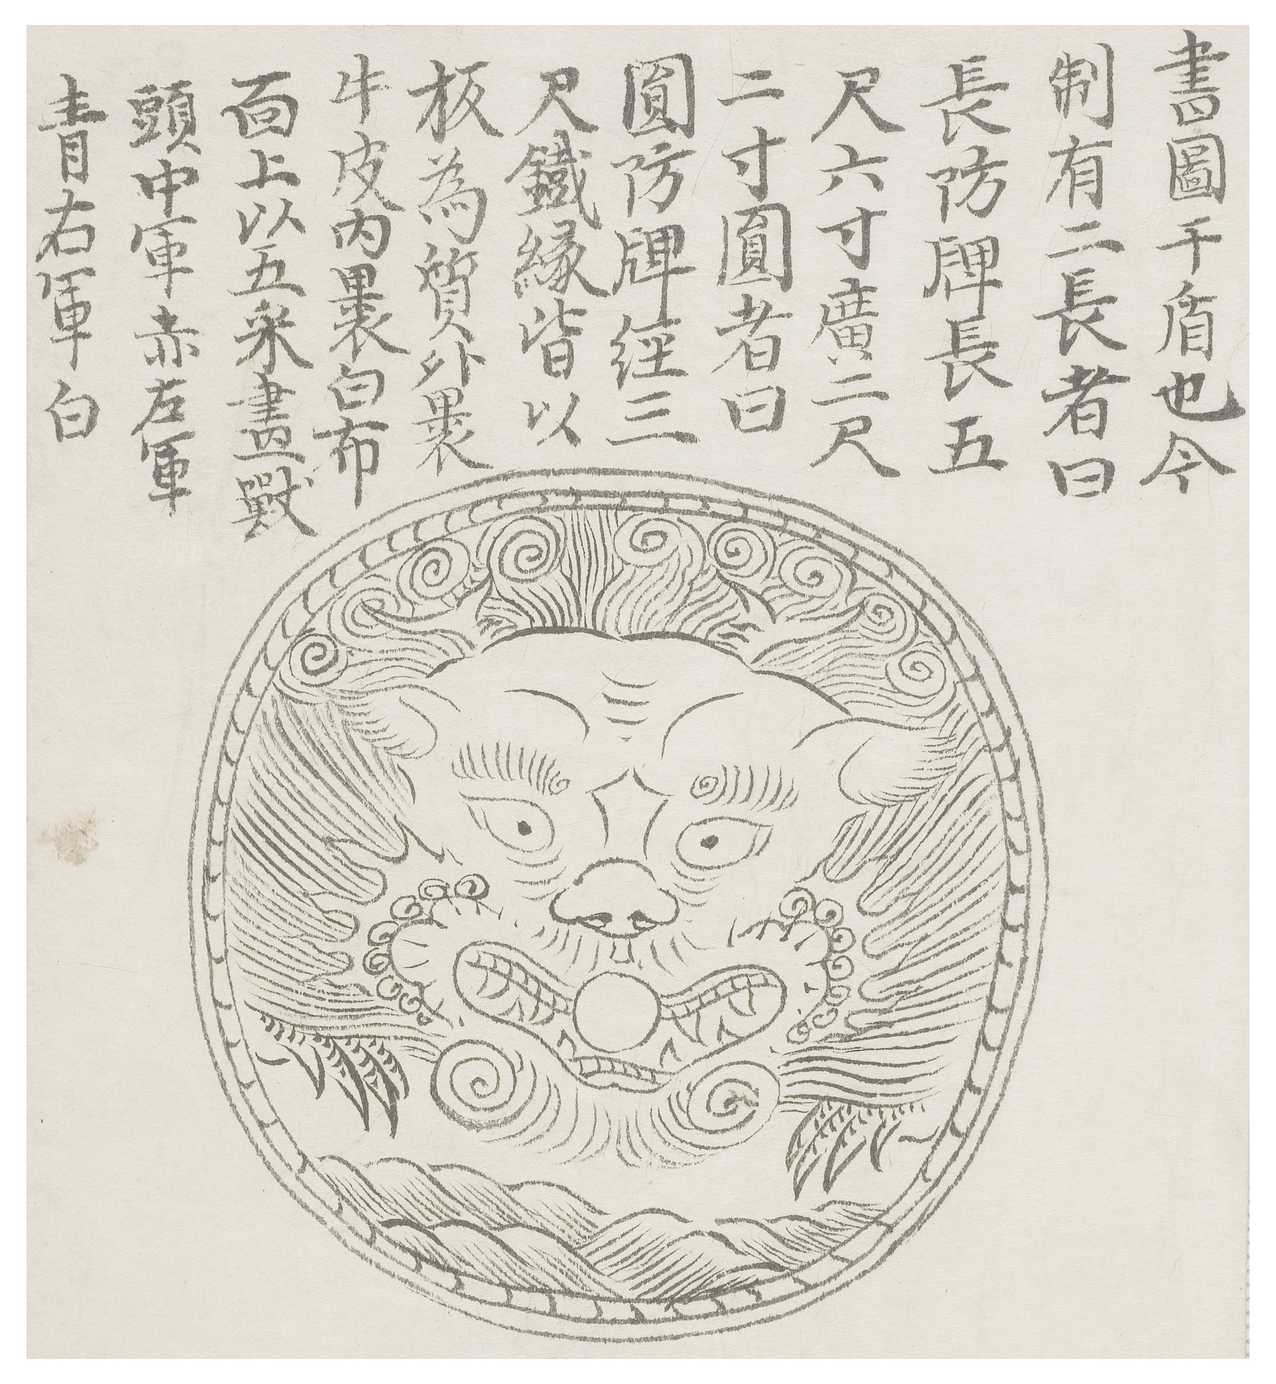 書圖干盾也今
制有二長者曰
長防牌長五
尺六寸廣二尺
二寸圓者曰
圓防牌經三
尺鐵縁皆以
板為質外裹
牛皮内裹白布
面上以五彩畫獸
頭中軍赤左軍
青右軍白